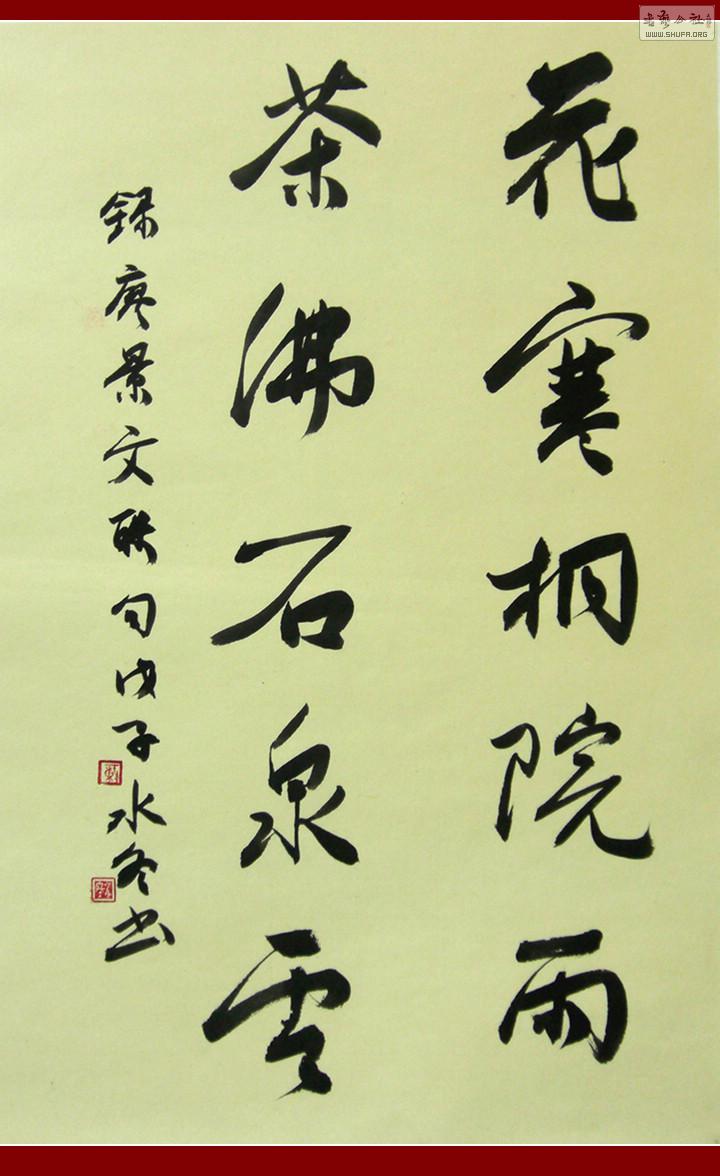 花寒桐院雨
茶沸石泉雲
録廖景文联句戊子水冬书
書藝公社
WWW.SHUFA.ORG